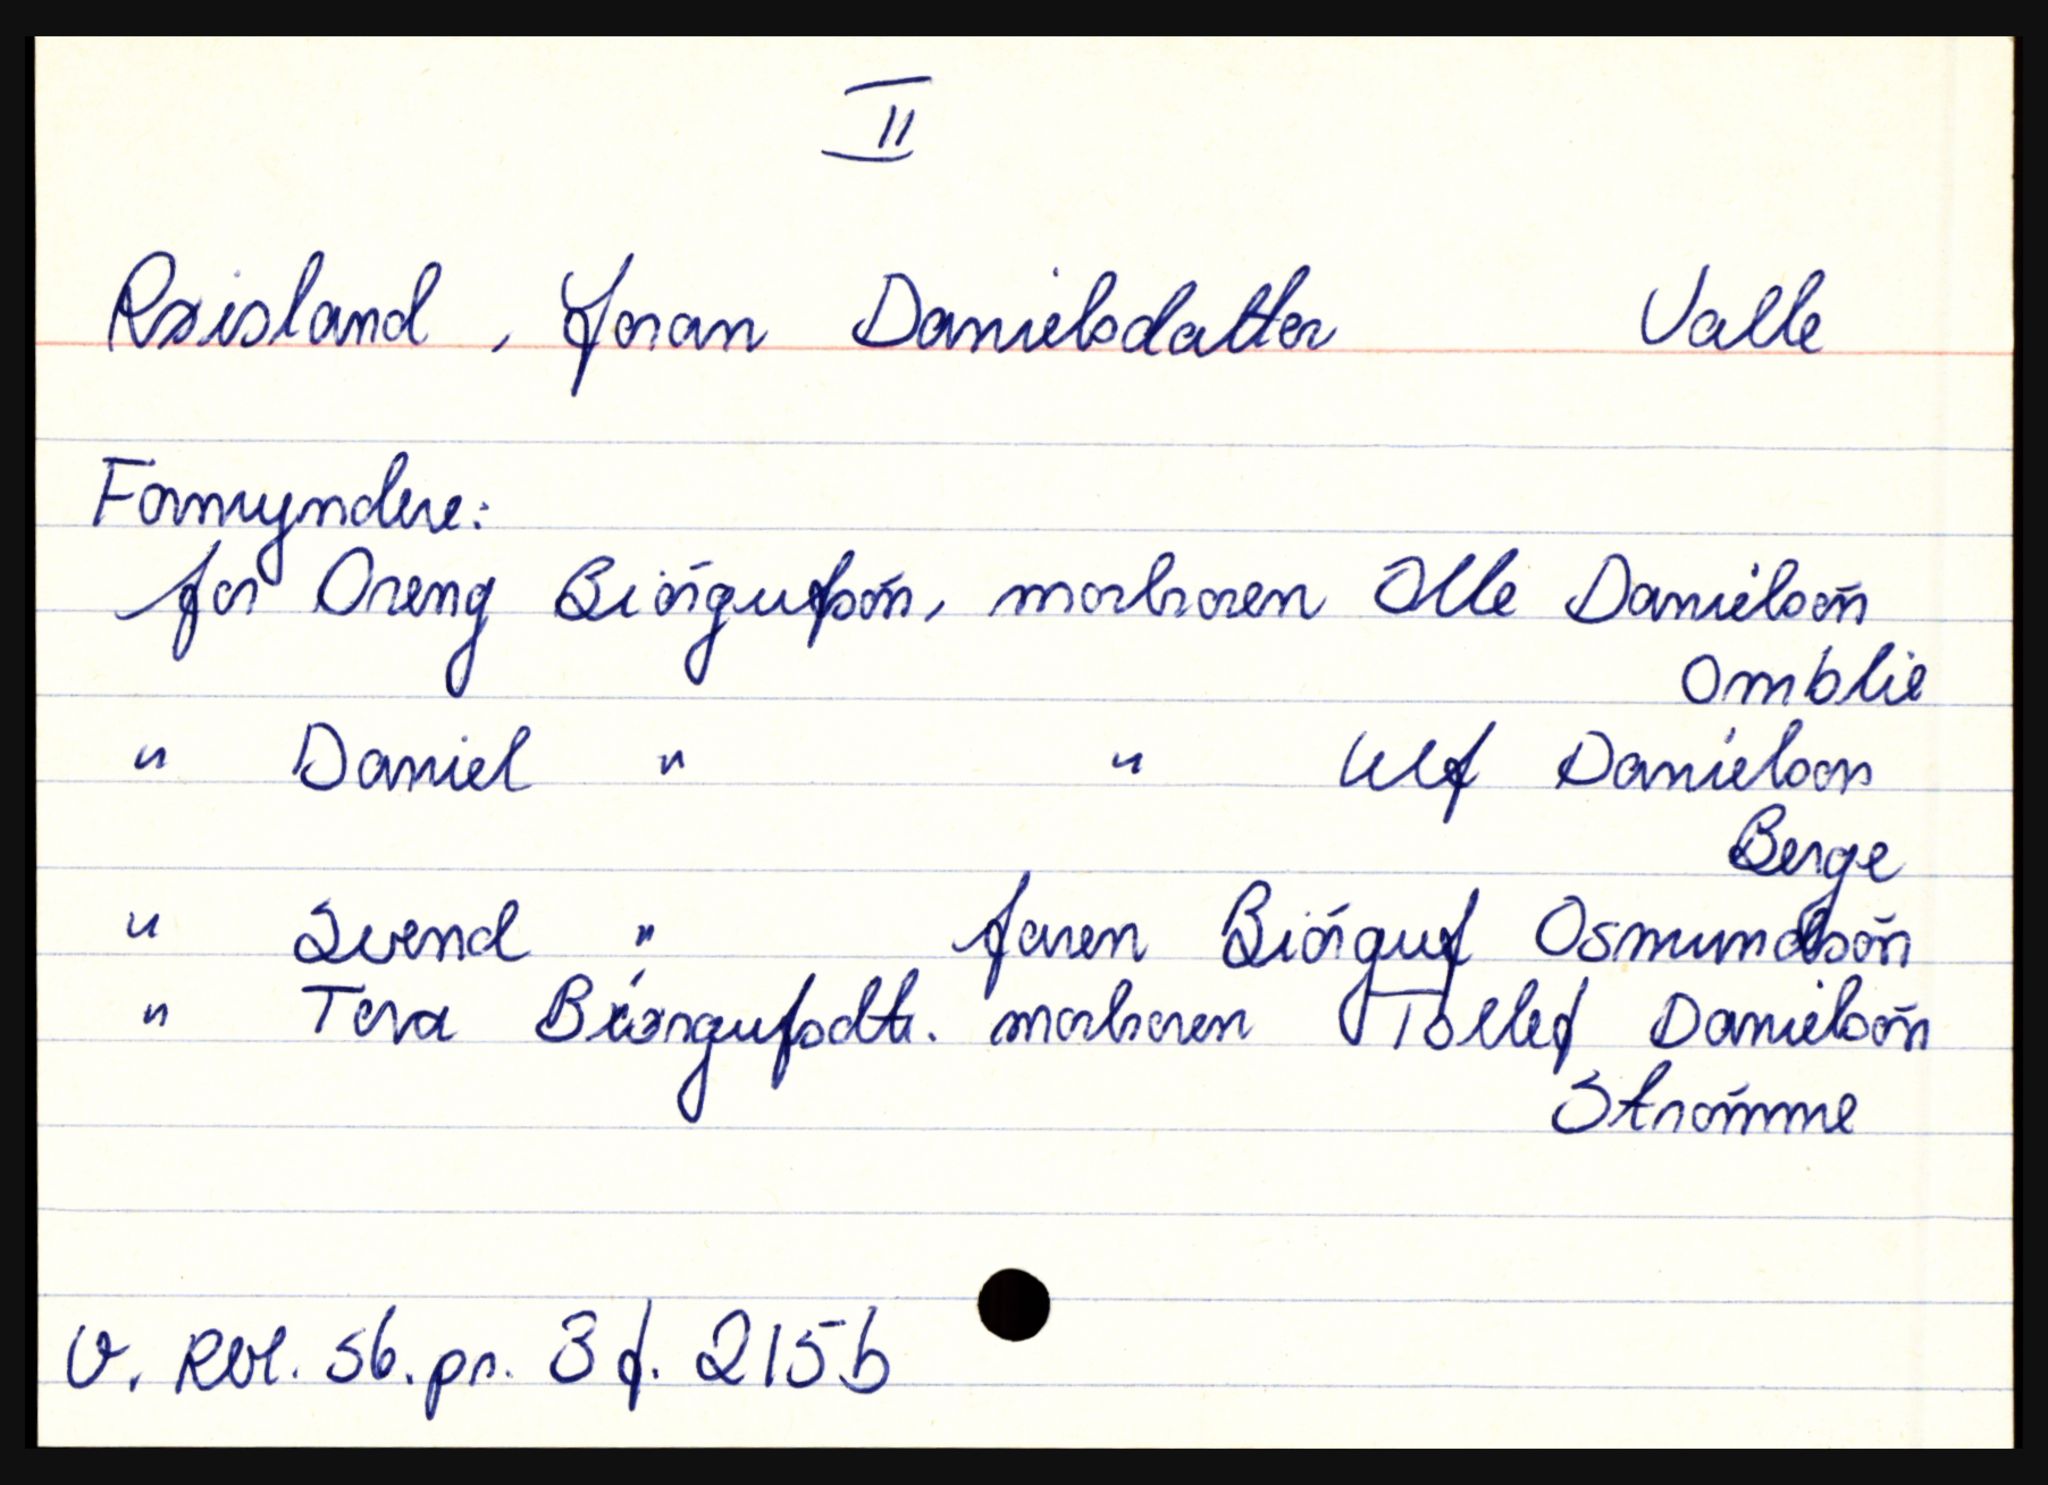 II
Rxisland, Joran Danielsdatter Valle
Formyndere:
for Oreng Biörgufsön, morbroren Olle Danielsön
Omblie
" Daniel " " Ulf Danielson
Berge
" Svend " faren Biörguf Osmundsön
" Tora Biörgufsdtr. morbroren Tollef Danielsön
Strömme
V. Rbl. sb. pr. 3 f. 215b